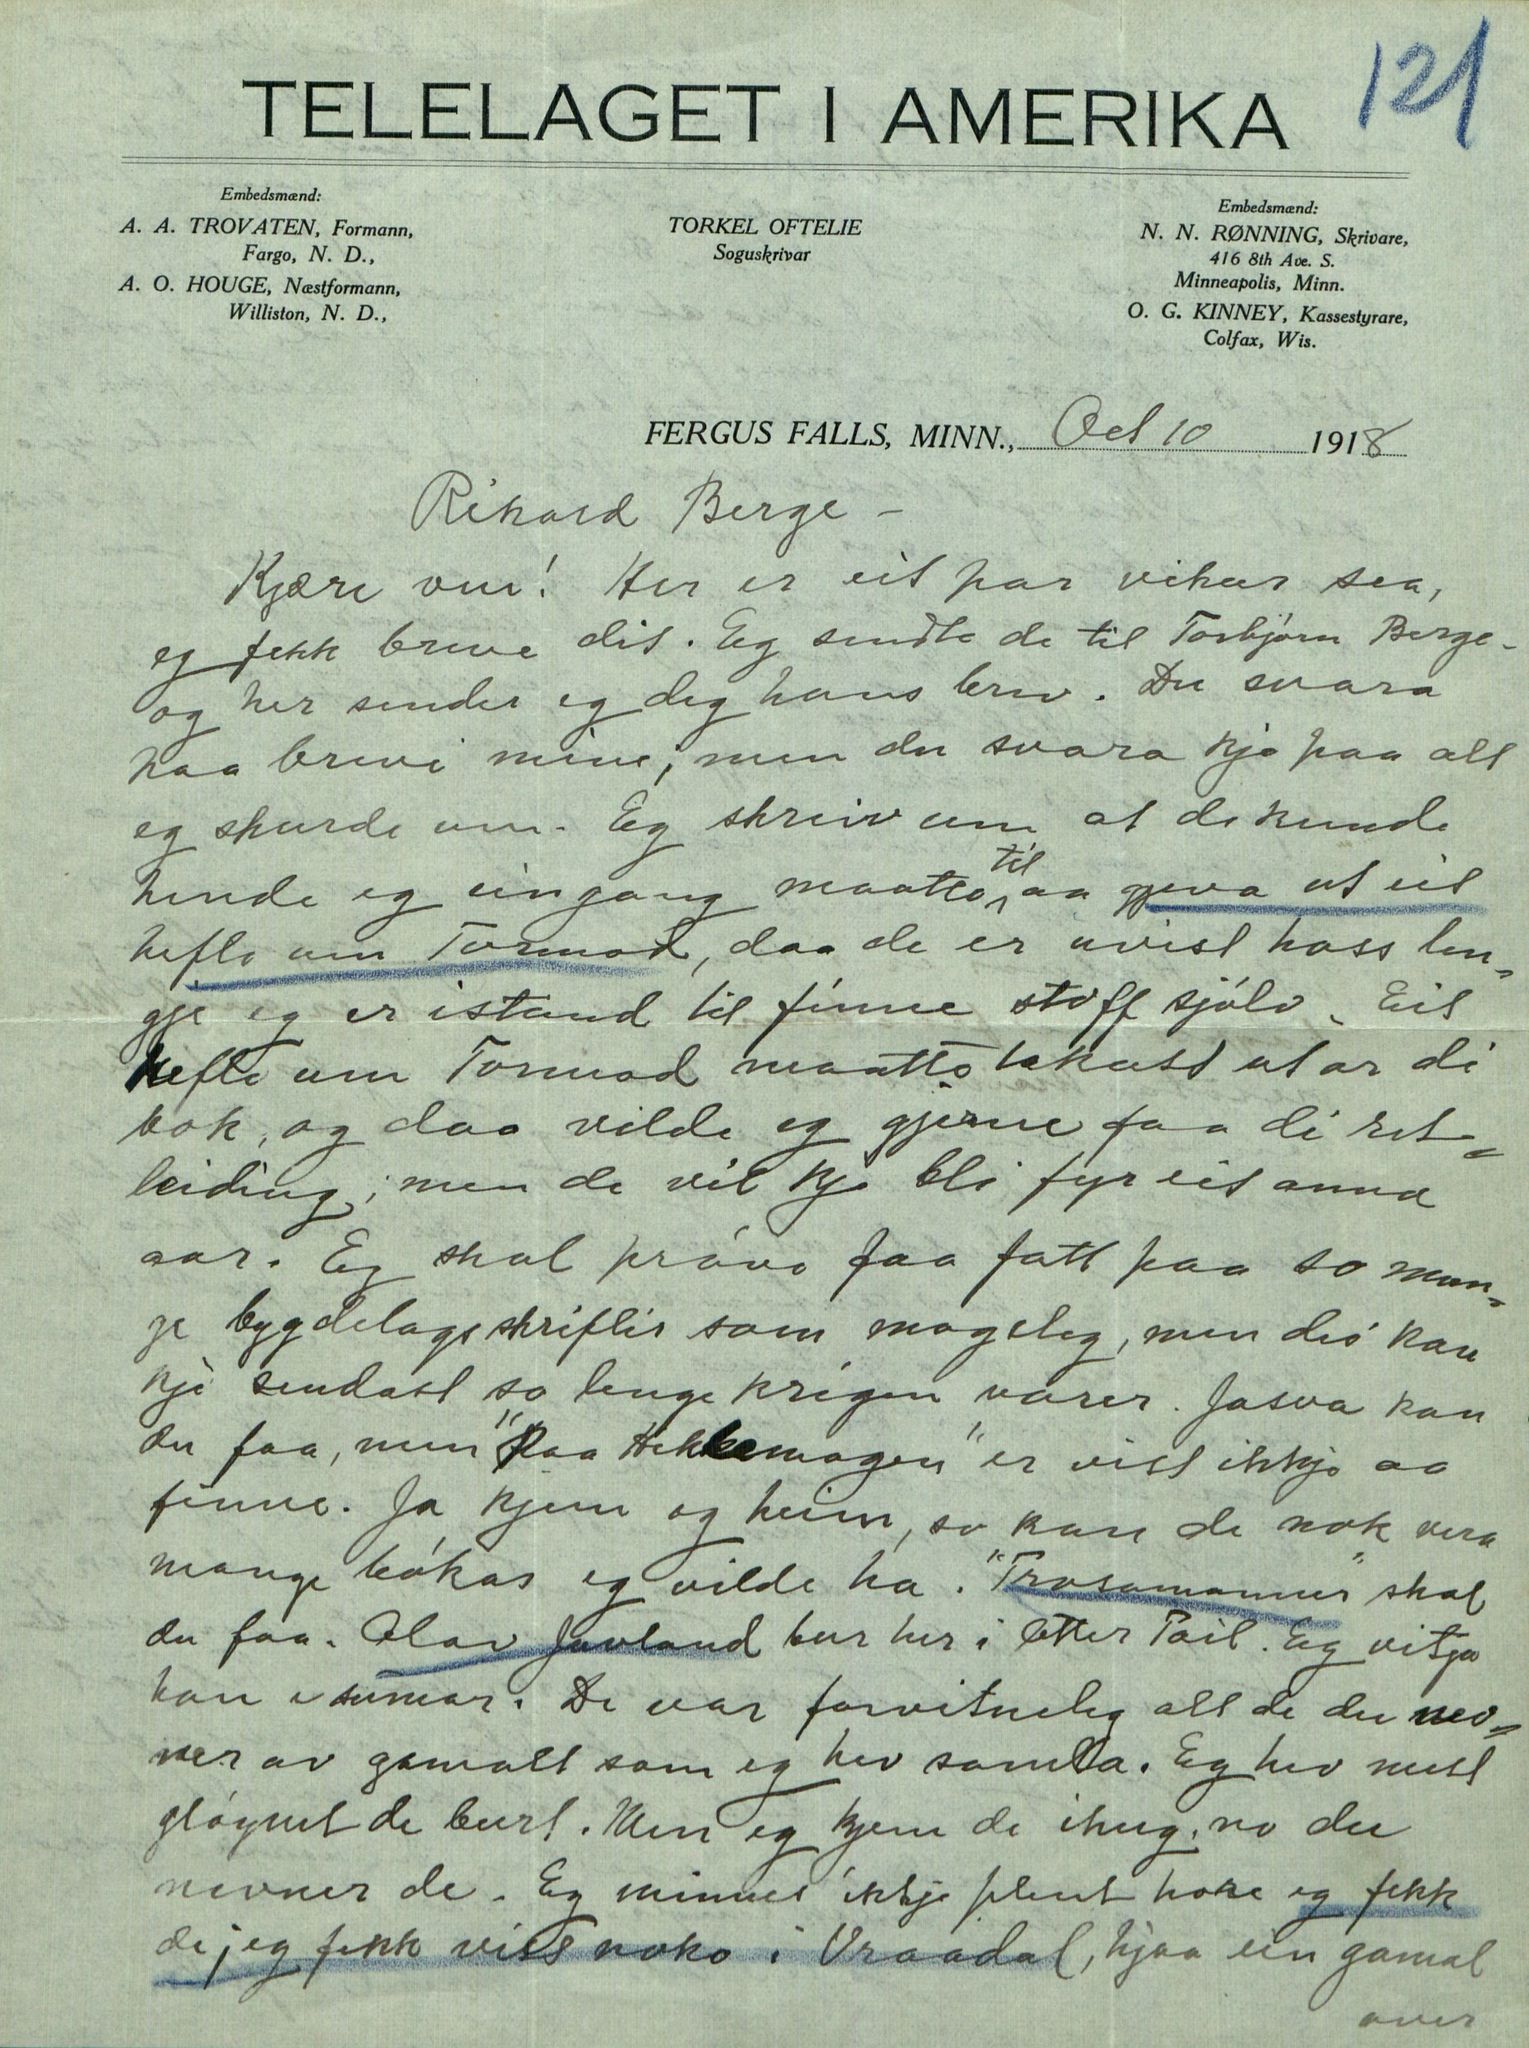 121
TELELAGET I AMERIKA
Embedsmænd:
A. A. TROVATEN, Formann,
Fargo, N. D.,
A. O. HOUGE, Næstformann,
Williston, N. D.,
TORKEL OFTELIE
Soguskrivar
Embedsmænd:
N. N. RØNNING, Skrivare,
416 8th Ave. S.
Minneapolis, Minn.
O. G. KINNEY, Kassestyrare,
Colfax, Wis.
FERGUS FALLS, MINN., Oct 10 1918
Rikard Berge –
Kjære ven! Her er eit par vikur sea,
eg fekk breve dit. Eg sendte de til Torbjørn Berge –
og her sender eg deg hans brev. Du svara
paa brevi mine, men du svara kje paa alt
eg skurde um. Eg skreiv um at de kunde
hende eg eingang maatte til aa gjeva ut eit
hefte um Tormod, daa de er uvist hoss len-
gje eg er istand til finne stoff sjólv. Eit
hefte um Tormod maatte takast ut or di
bok, og daa vilde eg gjerne faa di ret-
leiding, men de vil kje bli fyr eit anna
aar. Eg skal próve faa fatt paa so man-
ge bygdelagsskrifter som mogeleg, men dei kan
kje sendast so lenge krigen varer. Jasva kan
du faa, men "Paa Hekkemogen" er visst ikkje aa
finne. Ja kjem eg heim, so kan de nok vera
mange bókar eg vilde ha. "Trosamanner" skal
du faa. Olav Juvland bur her i Otter Tail. Eg vitja
han i sumar. De var forvitneleg alt de du nev-
ner av gamalt som eg hev samla. Eg hev mest
glóymt de burt. Men eg kjem de ihug, no du
nevner de. Eg minnes ikkje plent hore eg fekk
de; eg fekk visst noko i Vraadal, hjaa ein gamal
over